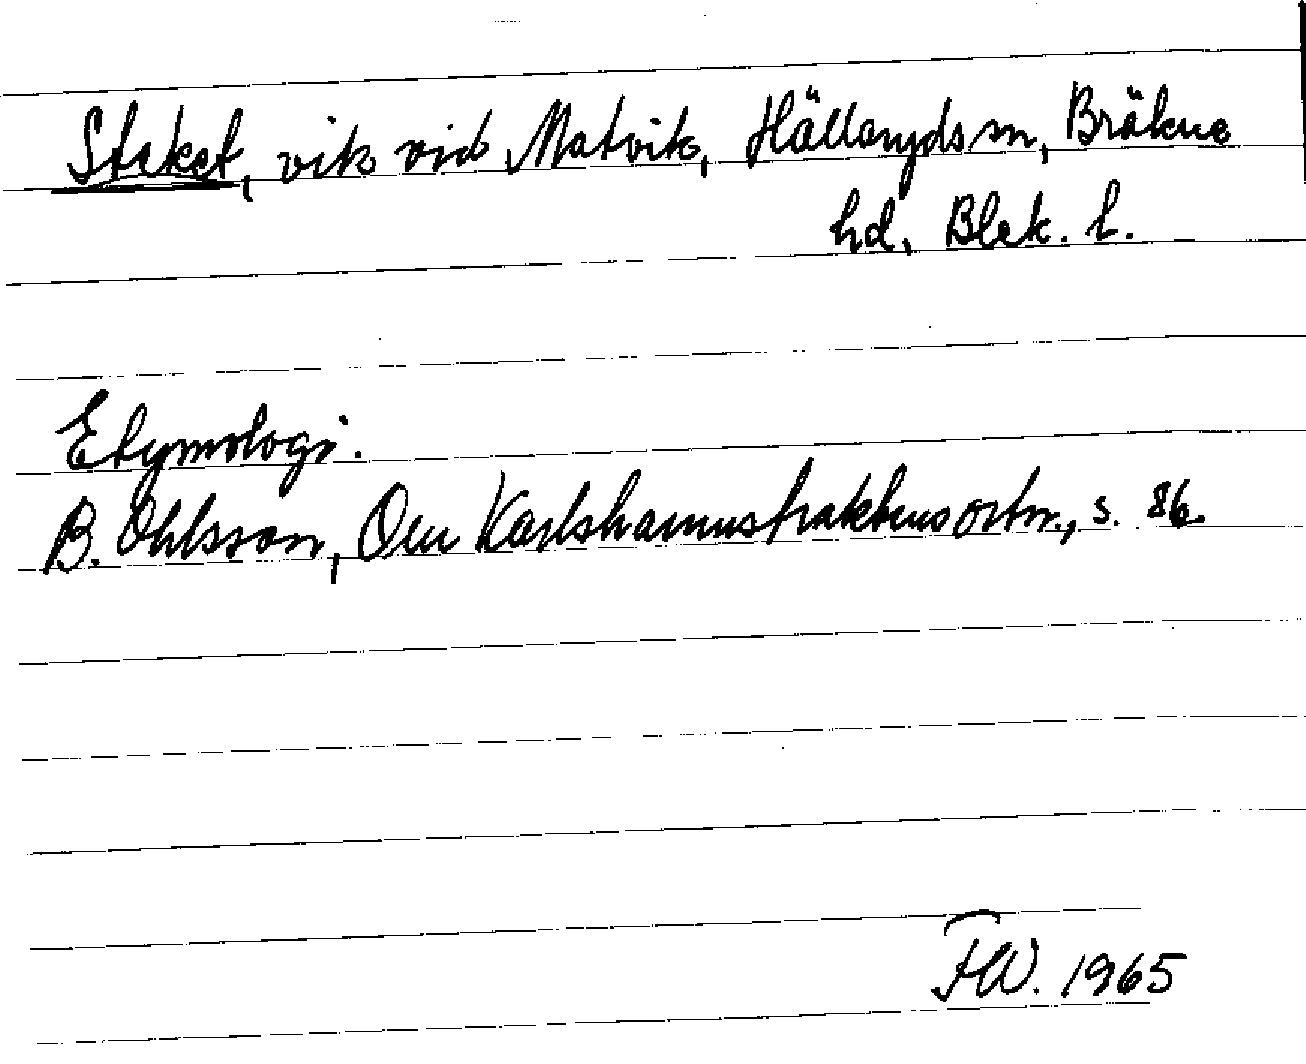 Steket, vik vid Matvik, Hällaryds sn, Bräkne
hd, Blek. l.
Etymologi.
B. Ohlsson, Om Karlshamnstraktens ortn., s. 86.
FW. 1965